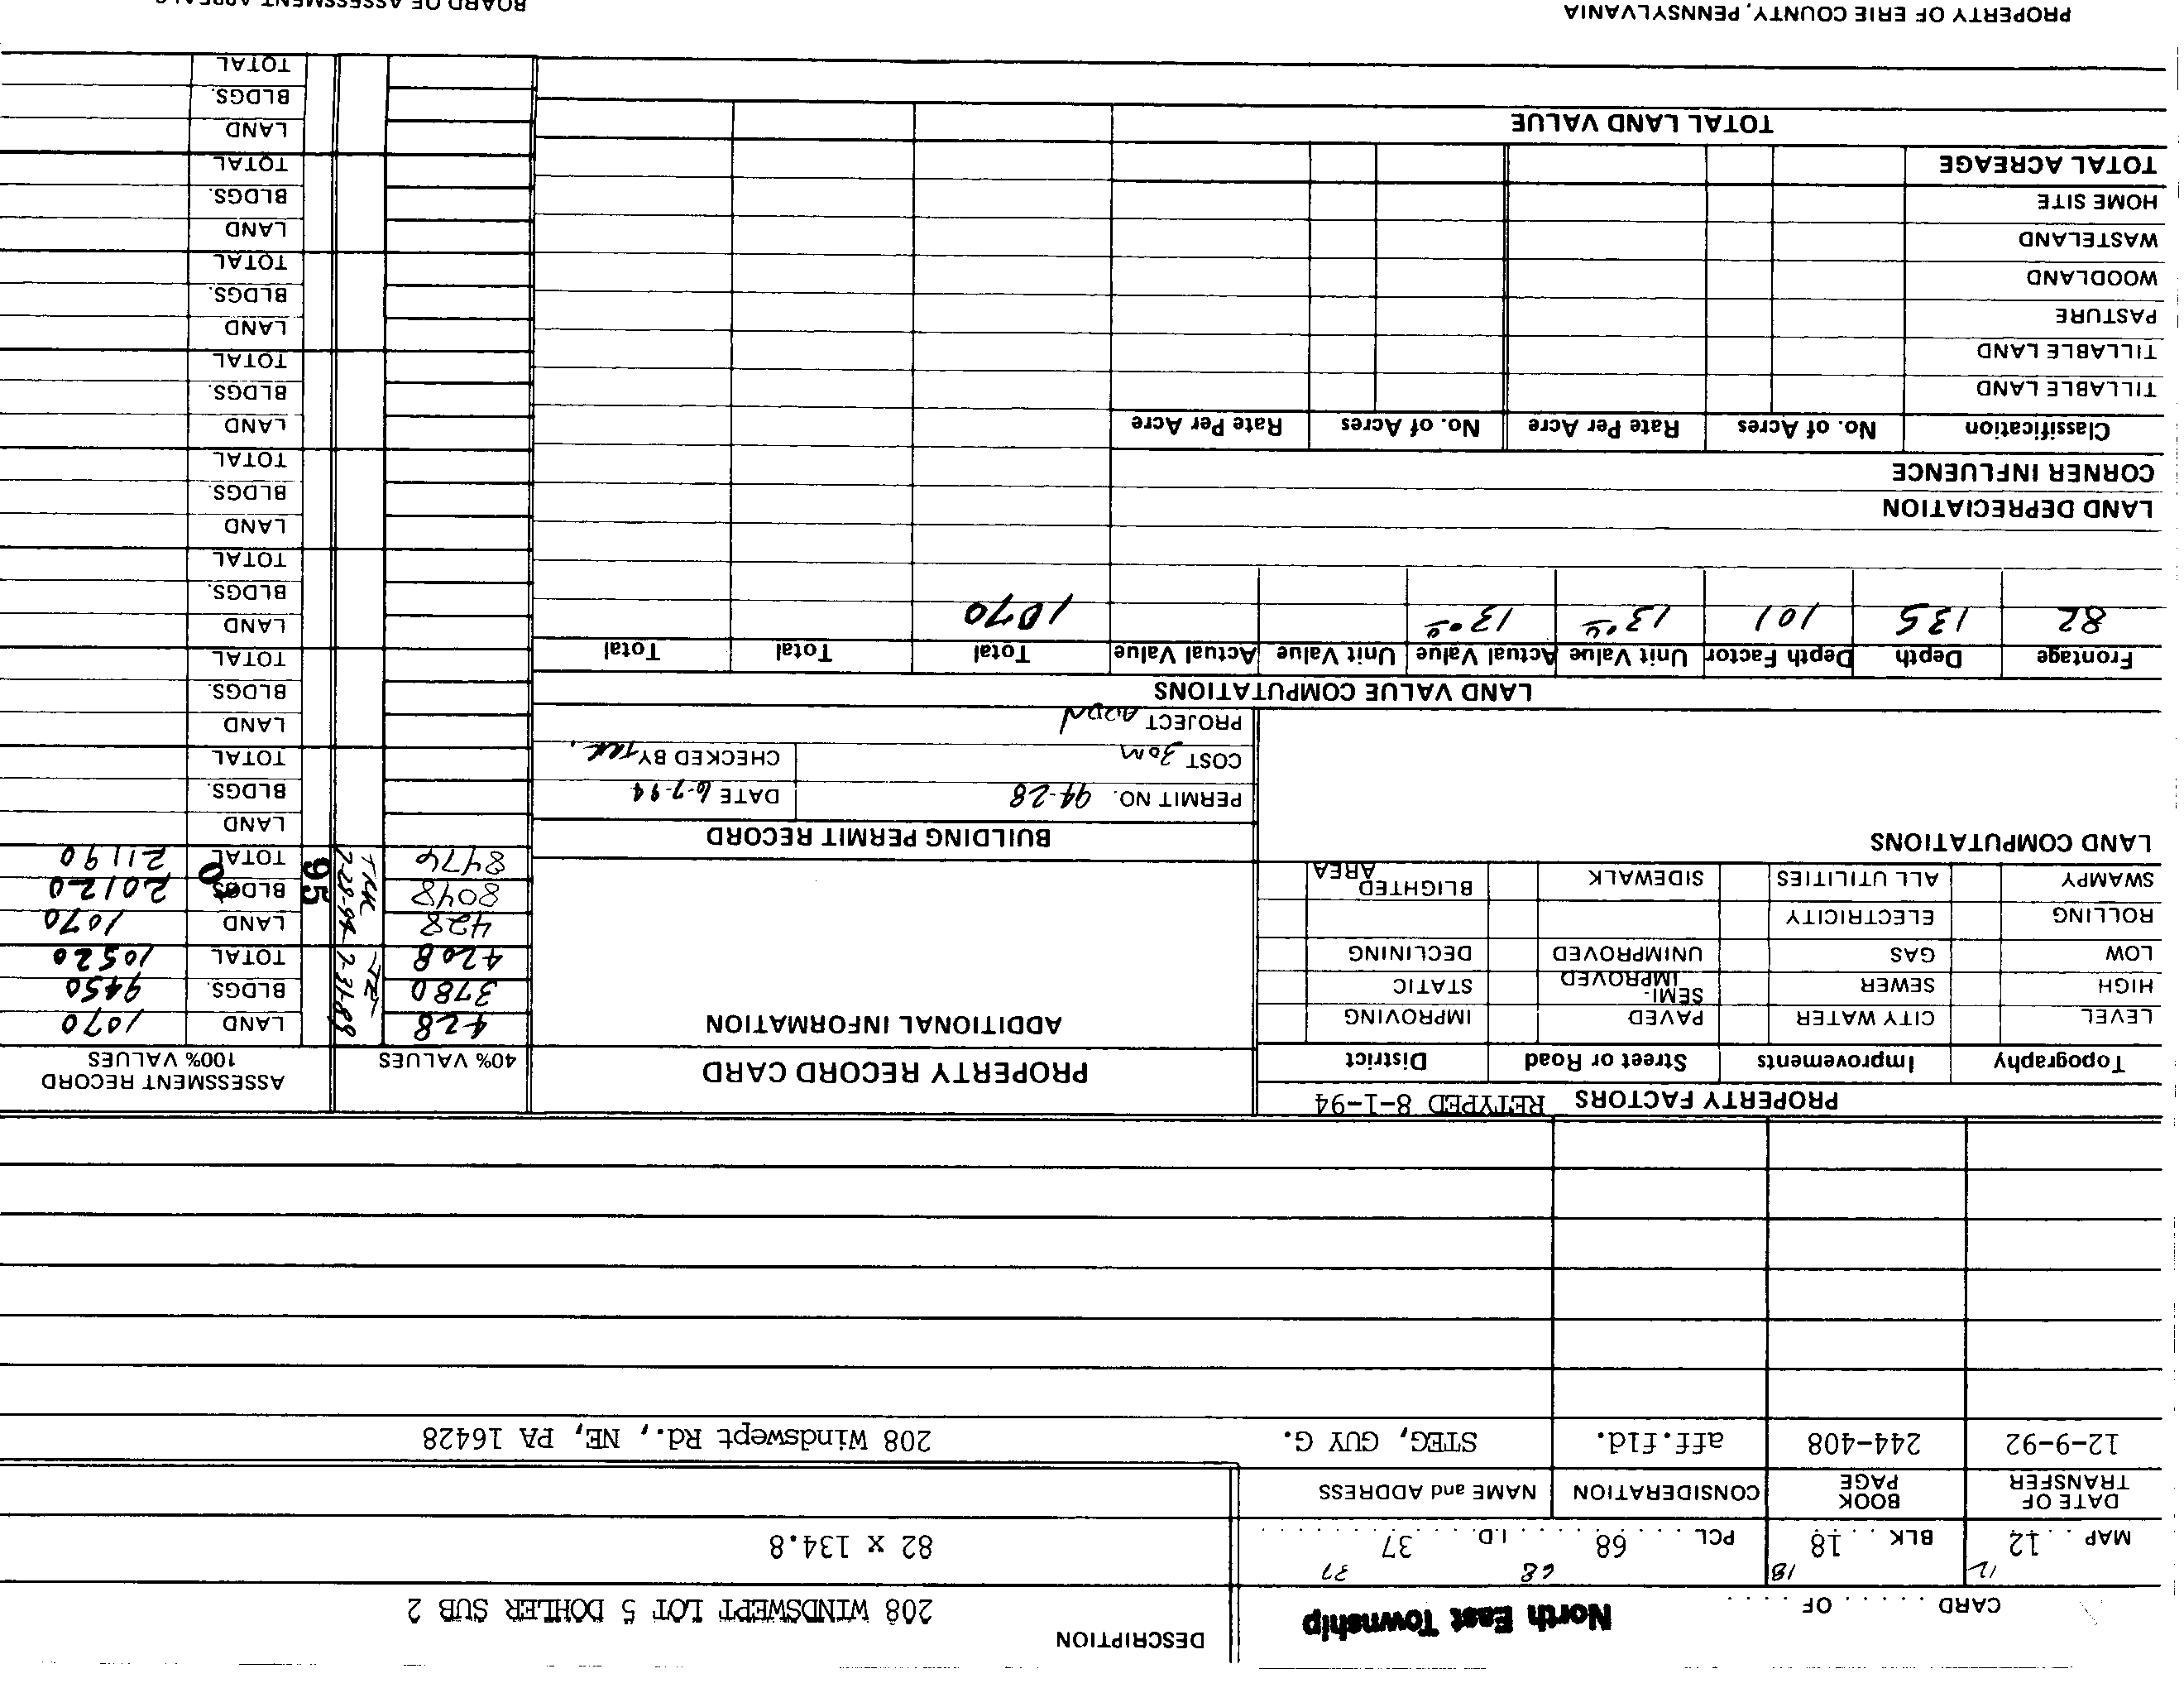 CARD ...... OF ......
North East Township
DESCRIPTION
208 WINDSWEPT LOT 5 DOHLER SUB 2
12 18 68 37
MAP ... 12 BLK ... 18 PCL .... 68 I.D. .... 37
82 x 134.8
DATE OF TRANSFER
BOOK PAGE
CONSIDERATION
NAME and ADDRESS
12-9-92 244-408 aff.fid. STEG, GUY G. 208 Windswept Rd., NE, PA 16428
PROPERTY FACTORS RETYPED 8-1-94
Topography Improvements Street or Road District
LEVEL CITY WATER PAVED IMPROVING
HIGH SEWER SEMI-IMPROVED STATIC
LOW GAS UNIMPROVED DECLINING
ROLLING ELECTRICITY
SWAMPY ALL UTILITIES SIDEWALK BLIGHTED AREA
LAND COMPUTATIONS
PROPERTY RECORD CARD
ADDITIONAL INFORMATION
BUILDING PERMIT RECORD
PERMIT NO. 94-28 DATE 6-7-94
COST 30m CHECKED BY
PROJECT ADDN
40% VALUES
ASSESSMENT RECORD
100% VALUES
428 7-31-89 LAND 1070
3780 BLDGS. 9450
4208 TOTAL 10520
428 7-29-94 LAND 1070
8048 TMK 95 BLDGS. 20120
8476 TOTAL 21190
LAND
BLDGS.
TOTAL
LAND
BLDGS.
TOTAL
LAND
BLDGS.
TOTAL
LAND
BLDGS.
TOTAL
LAND
BLDGS.
TOTAL
LAND
BLDGS.
TOTAL
LAND
BLDGS.
TOTAL
LAND
BLDGS.
TOTAL
LAND VALUE COMPUTATIONS
Frontage Depth Depth Factor Unit Value Actual Value Unit Value Actual Value Total Total Total
82 135 101 13.00 13.00 1070
LAND DEPRECIATION
CORNER INFLUENCE
Classification No. of Acres Rate Per Acre No. of Acres Rate Per Acre
TILLABLE LAND
TILLABLE LAND
PASTURE
WOODLAND
WASTELAND
HOME SITE
TOTAL ACREAGE
TOTAL LAND VALUE
PROPERTY OF ERIE COUNTY, PENNSYLVANIA
BOARD OF ASSESSMENT APPEALS